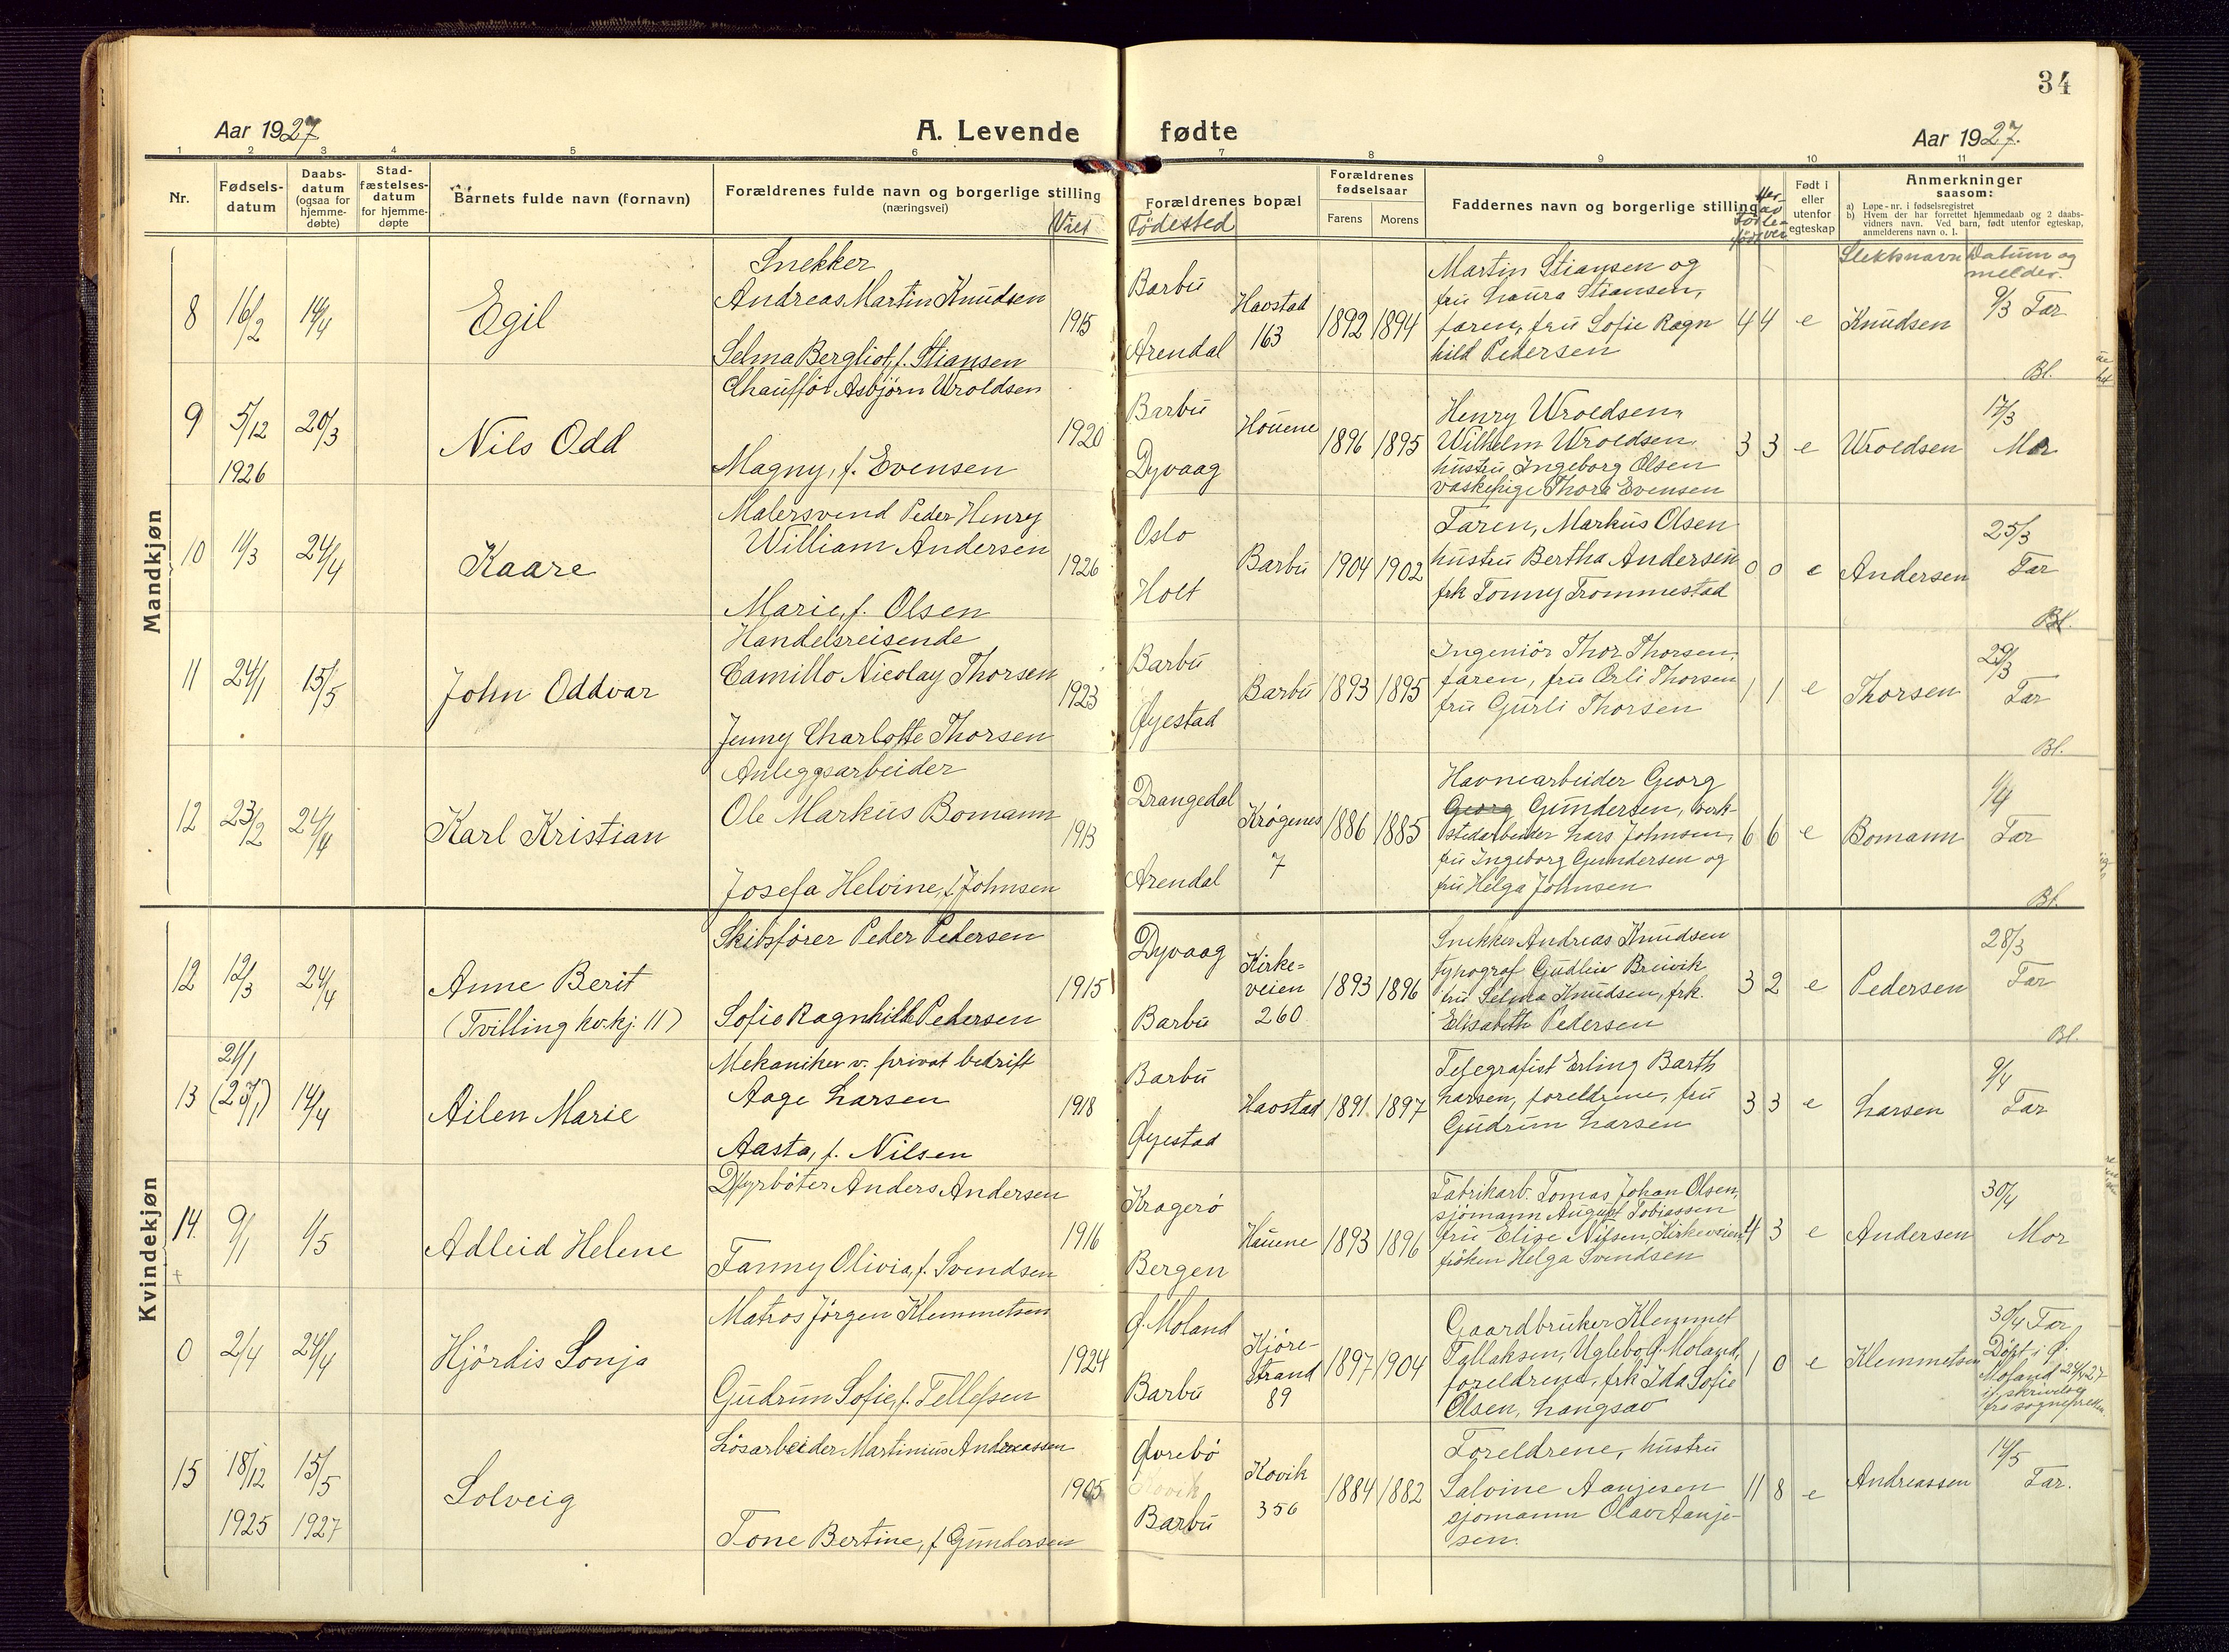 34
Aar 1927
A. Levende fødte
Aar 1927.
1 2 3 4 5 6 7 8 9 10 11
Nr.
Fødsels-
datum
Daabs-
datum
(ogsaa for
hjemme-
døbte)
Stad-
fæstelses-
datum
for hjemme-
døpte
Barnets fulde navn (fornavn)
Forældrenes fulde navn og borgerlige stilling
(næringsvei)
Viet
Forældrenes bopæl
Fødested
Forældrenes
fødselsaar
Farens Morens
Faddernes navn og borgerlige stilling
Født i
eller
utenfor
egteskap
Anmerkninger
saasom:
a) Løpe-nr. i fødselsregistret
b) Hvem der har forrettet hjemmedaab og 2 daabs-
vidners navn. Ved barn, født utenfor egteskap,
anmelderens navn o. l.
Slektsnavn Datum og
melder.
Mandkjøn
8 16/2 14/4
Egil
Snekker
Andreas Martin Knudsen
Selma Bergliot, f. Stiansen
1915
Barbu
Arendal
Havstad
163
1892 1894
Martin Stiansen og
fru Laura Stiansen,
faren, fru Sofie Ragn
hild Pedersen
4 4 e Knudsen
9/3 Far
Bl.
9 5/12 20/3
1926
Nils Odd
Chauffør Asbjørn Uroldsen
Magny, f. Evensen
1920
Barbu
Dyvaag
Houene
1896 1895
Henry Uroldsen,
Wilhelm Uroldsen,
hustru Ingeborg Olsen
vaskepige Thora Evensen
3 3 e Uroldsen
17/3
Mor
10 11/3 24/4
Kaare
Malersvend Peder Henry
William Andersen
Marie, f. Olsen
1926
Oslo
Holt
Barbu
1904 1902
Faren, Markus Olsen
hustru Bertha Andersen
frk Tonny Trommestad
0 0 e Andersen
25/3
Far
Bl.
11 24/1 15/5
John Oddvar
Handelsreisende
Camillo Nicolay Thorsen
Jenny Charlotte Thorsen
1923
Barbu
Øyestad
Barbu
1893 1895
Ingeniör Thor Thorsen,
faren, fru Orli Thorsen
fru Gurli Thorsen
1 1 e Thorsen
29/3
Far
Bl.
12 23/2 24/4
Karl Kristian
Anleggsarbeider
Ole Markus Bomann
Josefa Helvine, f. Johnsen
1913
Drangedal
Arendal
Krøgenes
7
1886 1885
Havnearbeider Georg
Georg Gundersen, verk-
stedarbeider Lars Johnsen,
fru Ingeborg Gundersen og
fru Helga Johnsen
6 6 e Bomann
1/4
Far
Bl.
Kvindekjøn
12 12/3 24/4
Anne Berit
(Tvilling kv.kj. 11)
Skibsfører Peder Pedersen
Sofie Ragnhild Pedersen
1915
Dyvaag
Barbu
Kirke-
veien
260
1893 1896
Snekker Andreas Knudsen
typograf Gudlin Breivik
fru Selma Knudsen, frk.
Elisabeth Pedersen
3 2 e Pedersen
28/3
Far
Bl.
13 21/1 (23/1) 14/4
Ailen Marie
Mekaniker v. privat bedrift
Aage Larsen
Aasta, f. Nilsen
1918
Barbu
Øyestad
Havstad
1891 1897
Telegrafist Erling Barth
Larsen, foreldrene, fru
Gudrun Larsen
3 3 e Larsen
9/4
Far
14. 9/1 1/5
+
Adleid Helene
Fyrbøter Anders Andersen
Fanny Olivia, f. Svendsen
1916
Kragerø
Bergen
Hauene
1893 1896
Fabrikarb. Tomas Johan Olsen,
sjömann August Tobiassen
fru Elise Nilsen, Kirkeveien
fröken Helga Svendsen
4 3 e Andersen
30/4
Mor
0 2/4 24/4
Hjördis Sonja
Matros Jörgen Klemmetsen
Gudrun Sofie, f. Tellefsen
1924
Ø. Moland
Barbu
Kjöre-
strand
89
1897 1904
Gaardbruker Klemmet
Tallaksen, Uglebo Ø. Moland,
foreldrene, frk Ida Sofie
Olsen, Langsæv
1 0 e Klemmetsen
30/4 Far
Döpt i Ø.
Moland 24/4 27
if. skrivelse
fra sogneprest
15 18/12 15/5
1925 1927
Solveig
Løsarbeider Martinius Andreassen
Tone Bertine, f. Gundersen
1905
Øvrebø
Barbu
Kovik
356
1884 1882
Foreldrene, hustru
Salvine Aanjesen
sjomann Olav Aanje-
sen.
11 8 e Andreassen
14/5
Far.